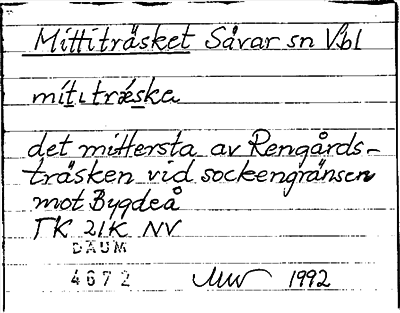 Mittiträsket Sävar sn Vbl
mítιtrǽska
det mittersta av Rengårds-
träsken vid sockengränsen
mot Bygdeå
TK 21K NV
DAUM
4672 1992